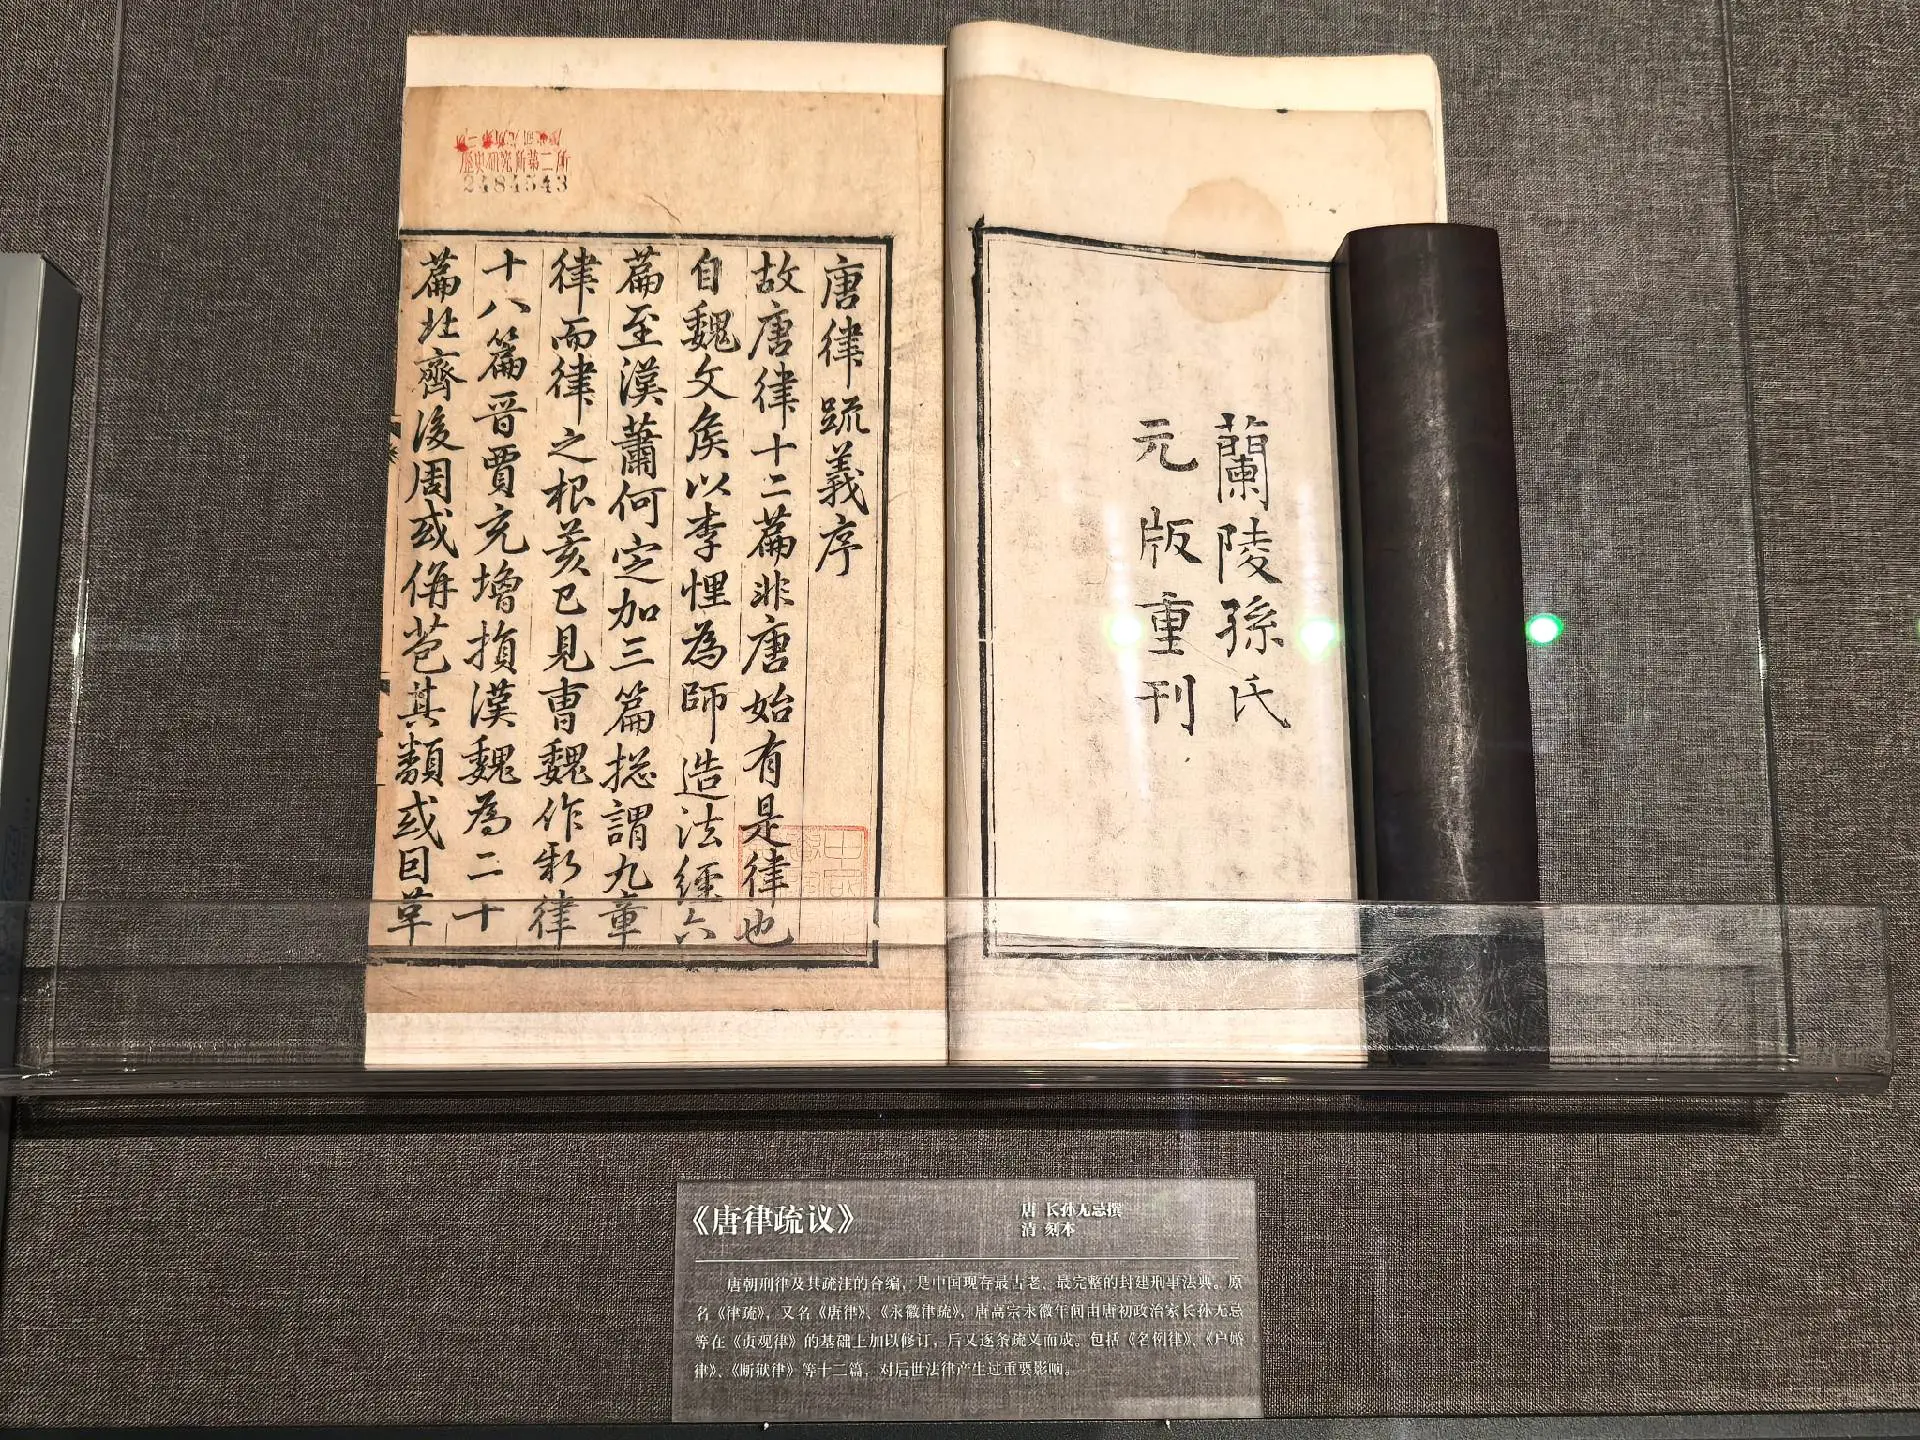 蘭陵孫氏
元版重刊
歷史研究所第二所
2484543
唐律疏義序
故唐律十二篇非唐始有是律也
自魏文矦以李悝為師造法經六
篇至漢蕭何定加三篇捴謂九章
律而律之根荄已見曹魏作新律
十八篇晋賈充增損漢魏為二十
篇北齊後周或併苞其類或因革
《唐律疏议》
唐 长孙无忌撰
清 刻本
唐朝刑律及其疏注的合编，是中国现存最古老、最完整的封建刑事法典。原
名《律疏》，又名《唐律》、《永徽律疏》，唐高宗永徽年间由唐初政治家长孙无忌
等在《贞观律》的基础上加以修订，后又逐条疏义而成。包括《名例律》、《户婚
律》、《断狱律》等十二篇，对后世法律产生过重要影响。